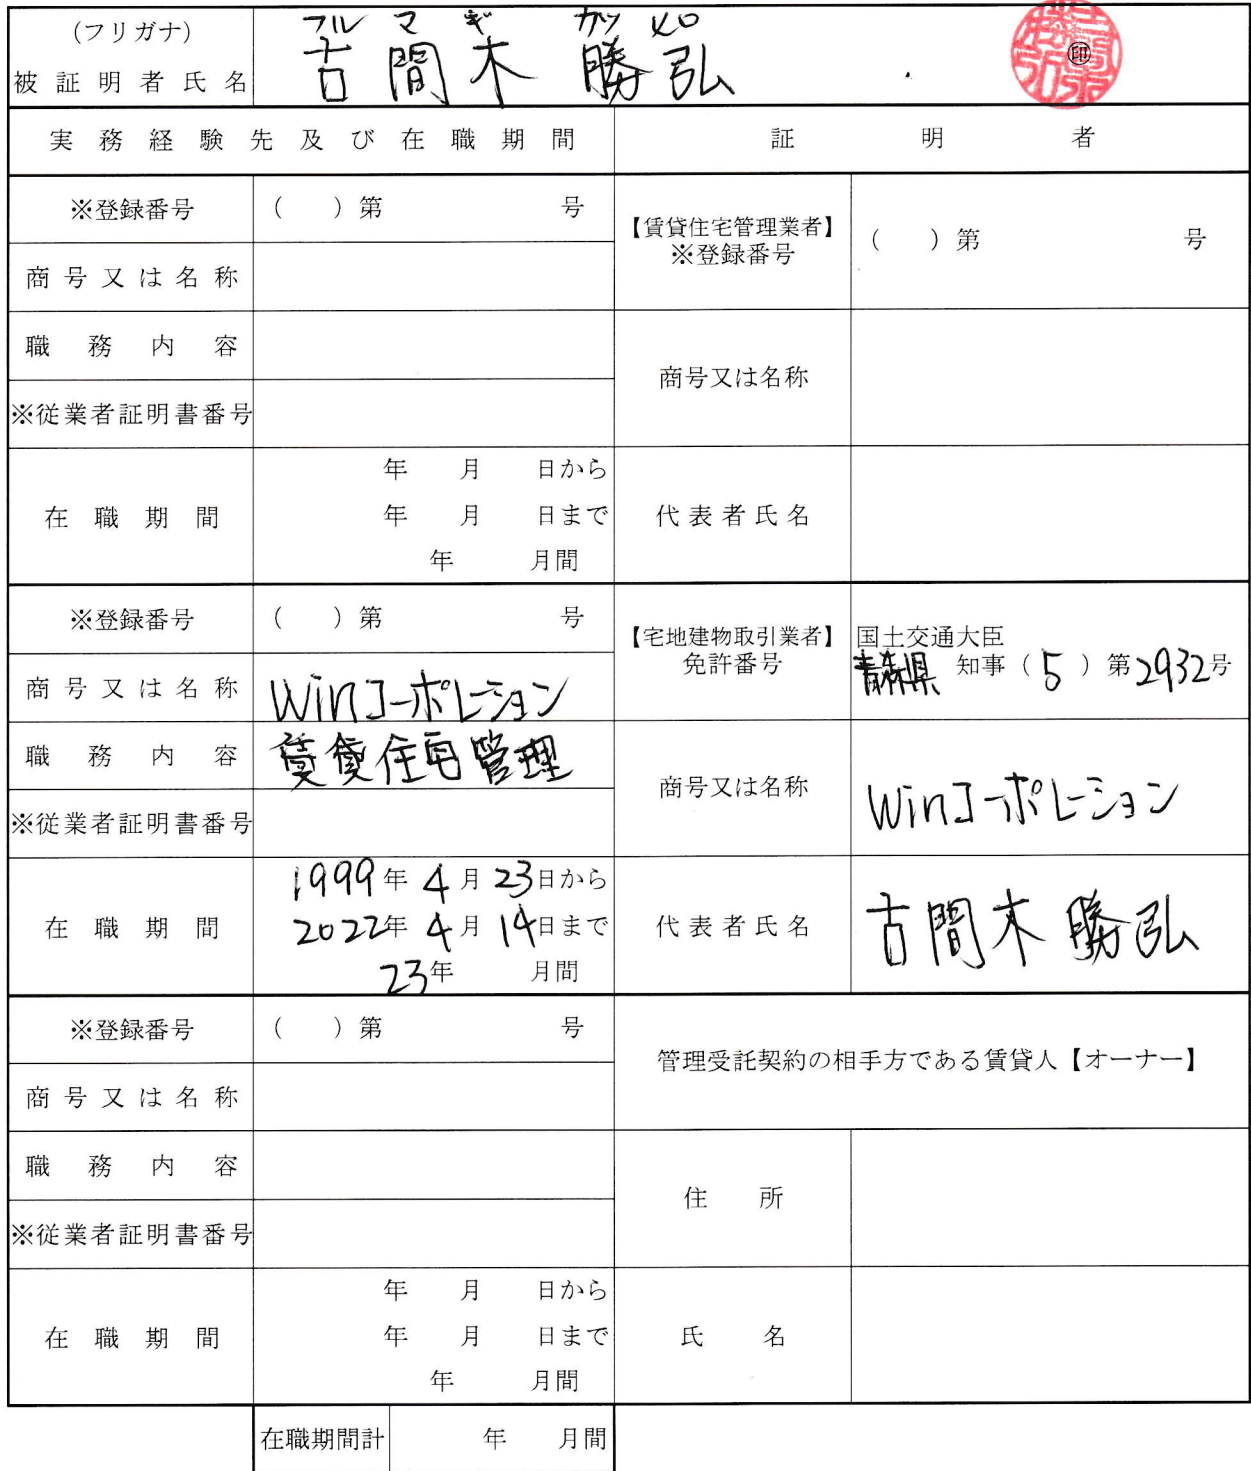 (フリガナ) フル マ ギ カツ ヒロ
被証明者氏名 古間木 勝弘 ㊞
実務経験先及び在職期間 証明者
※登録番号 ( )第 号
【賃貸住宅管理業者】
※登録番号 ( )第 号
商号又は名称
職務内容
商号又は名称
※従業者証明書番号
年 月 日から
在職期間 年 月 日まで
年 月間
代表者氏名
※登録番号 ( )第 号
【宅地建物取引業者】 国土交通大臣
免許番号 青森県 知事(5)第2932号
商号又は名称 Winコーポレーション
職務内容 賃貸住宅管理
商号又は名称 Winコーポレーション
※従業者証明書番号
1999年4月23日から
在職期間 2022年4月14日まで
23年 月間
代表者氏名 古間木 勝弘
※登録番号 ( )第 号
管理受託契約の相手方である賃貸人【オーナー】
商号又は名称
職務内容
住所
※従業者証明書番号
年 月 日から
在職期間 年 月 日まで
年 月間
氏名
在職期間計 年 月間